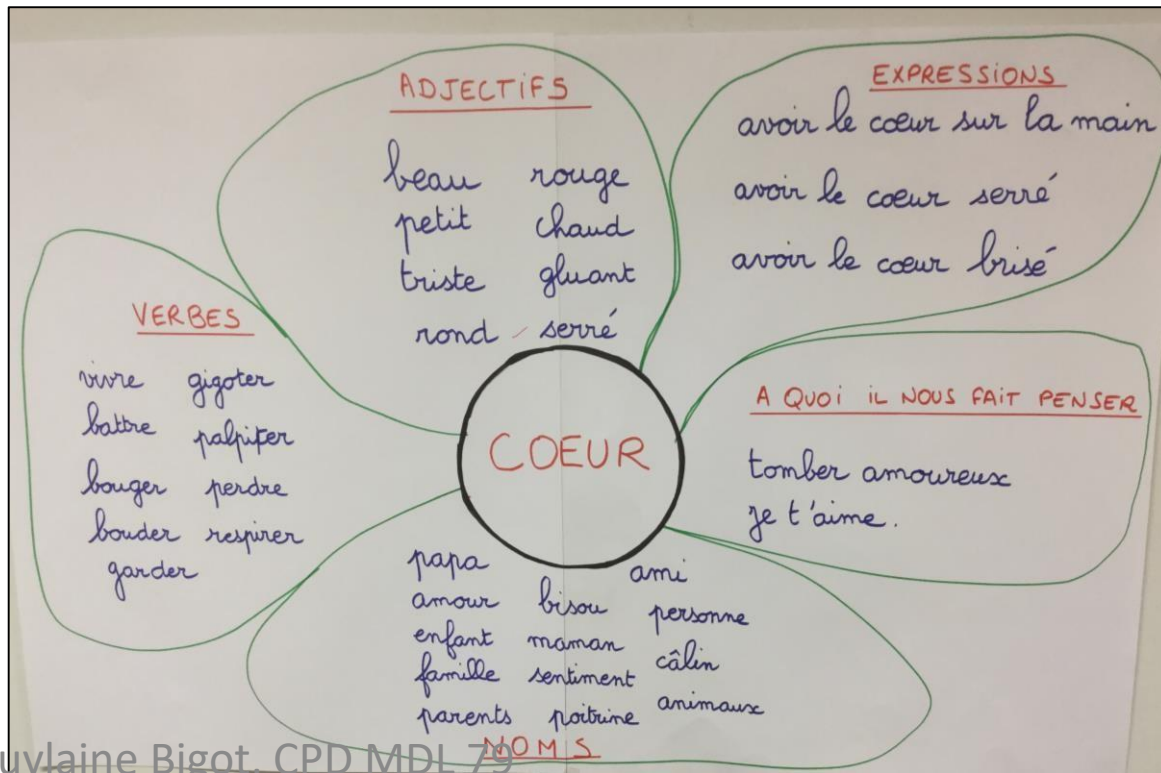 ADJECTIFS
beau rouge
petit chaud
triste gluant
rond serré
EXPRESSIONS
avoir le cœur sur la main
avoir le cœur serré
avoir le cœur brisé
VERBES
vivre gigoter
battre palpiter
bouger perdre
bouder respirer
garder
COEUR
A QUOI IL NOUS FAIT PENSER
tomber amoureux
je t'aime.
papa ami
amour bisou personne
enfant maman
famille sentiment câlin
parents poitrine animaux
NOMS
Bigot, CPD MDL 79